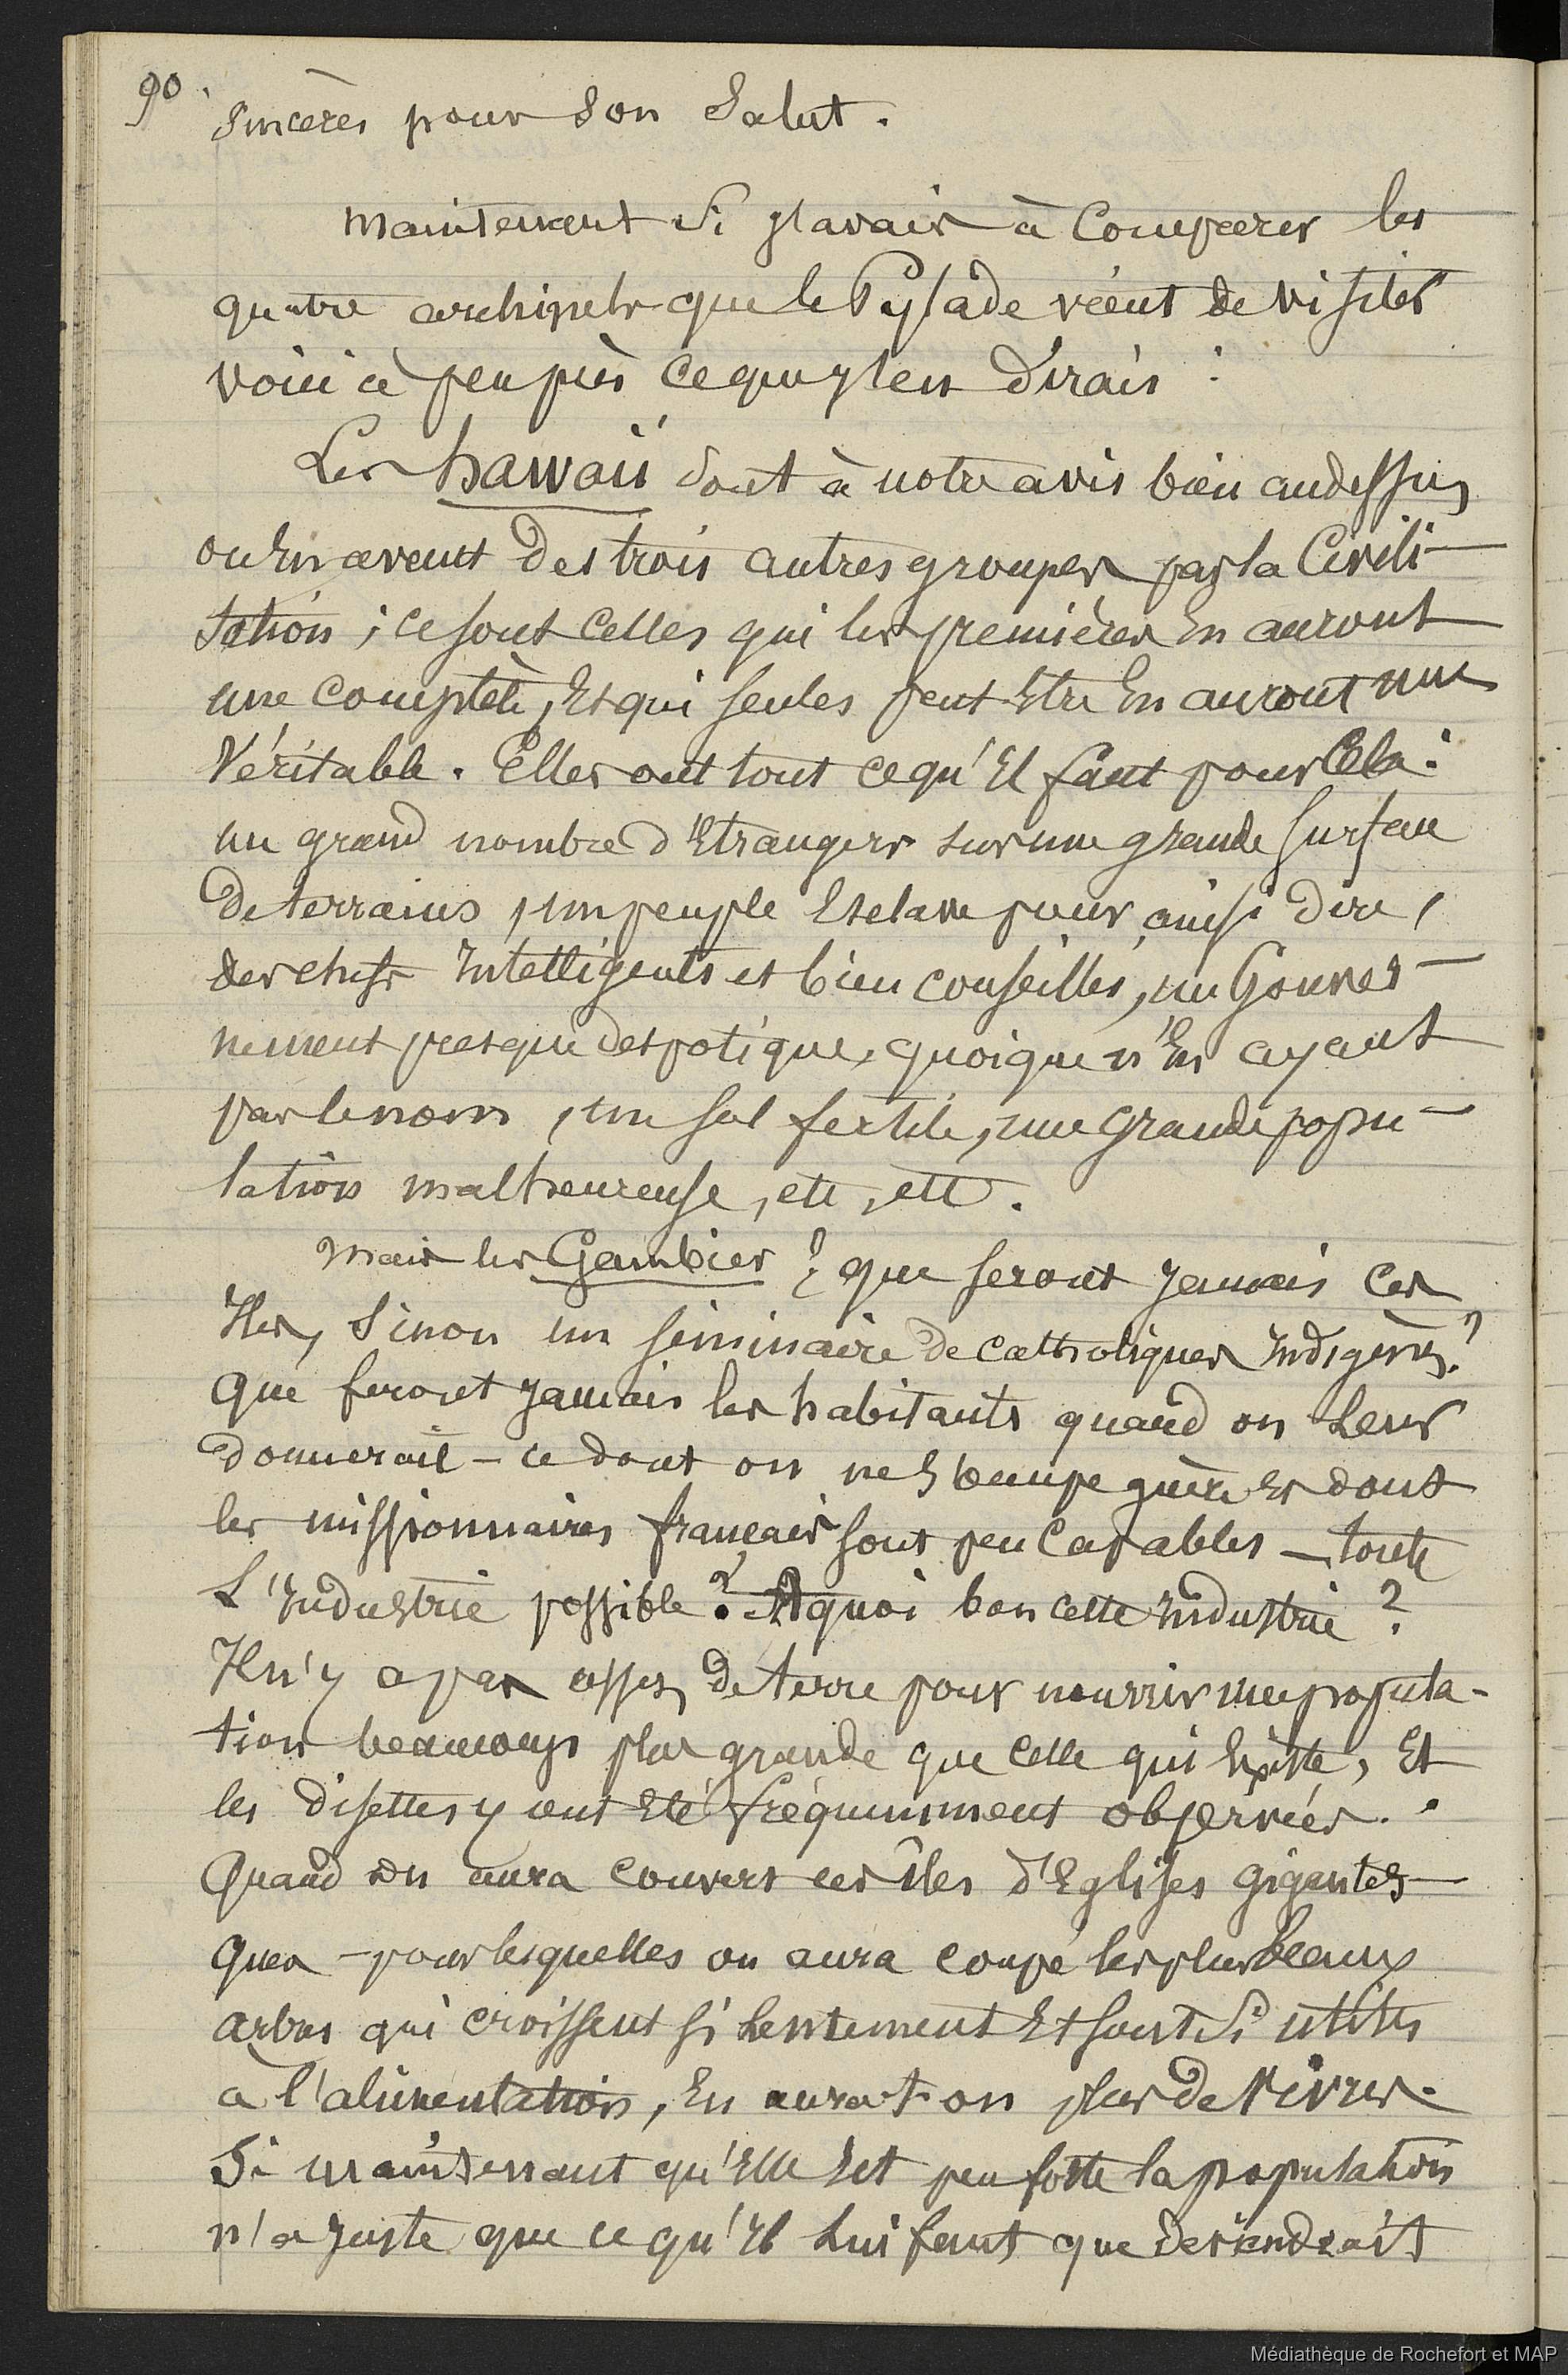 90.
sincères pour son salut.
Maintenant si j'avais à comparer les
quatre archipels que le Pylade vient de visiter
voici à peu près ce que j'en dirais :
Les hawaii sont à notre avis bien audessus
ou En avant des trois autres groupes par la Civili-
sation ; ce sont celles qui les premières En auront
une complète, Et qui seules peut Etre En auront une
Véritable. Elles ont tout ce qu'Il faut pour Cela :
un grand nombre d'Etrangers sur une grande surface
de terrains, un peuple Esclave pour ainsi dire,
des chefs Intelligents et bien conseillés, un Gouver-
nement presque despotique, quoique n'En ayant
pas le nom, un sol fertile, une grande popu-
lation malheureuse, etc, etc.
Mais les Gambier ? que seront jamais ces
Iles, sinon un séminaire de catholiques Indigènes ?
Que feront jamais les habitants quand on Leur
donnerait - ce dont on ne s'occupe guère Et dont
les missionnaires français sont peu Capables - toute
L'Industrie possible ? A quoi bon cette Industrie ?
Il n'y a pas assez de terre pour nourrir une popula-
tion beaucoup plus grande que celle qui Existe, Et
les disettes y ont Eté fréquemment observées.
Quand on aura couvert ces îles d'Eglises gigantes-
ques - pour lesquelles on aura coupé les plus beaux
arbres qui croissent si Lentement Et sont si utiles
à l'alimentation, En aura-t-on plus de Vivres.
Si maintenant qu'Elle Est peu forte la population
n'a juste que ce qu'Il Lui faut que deviendrait